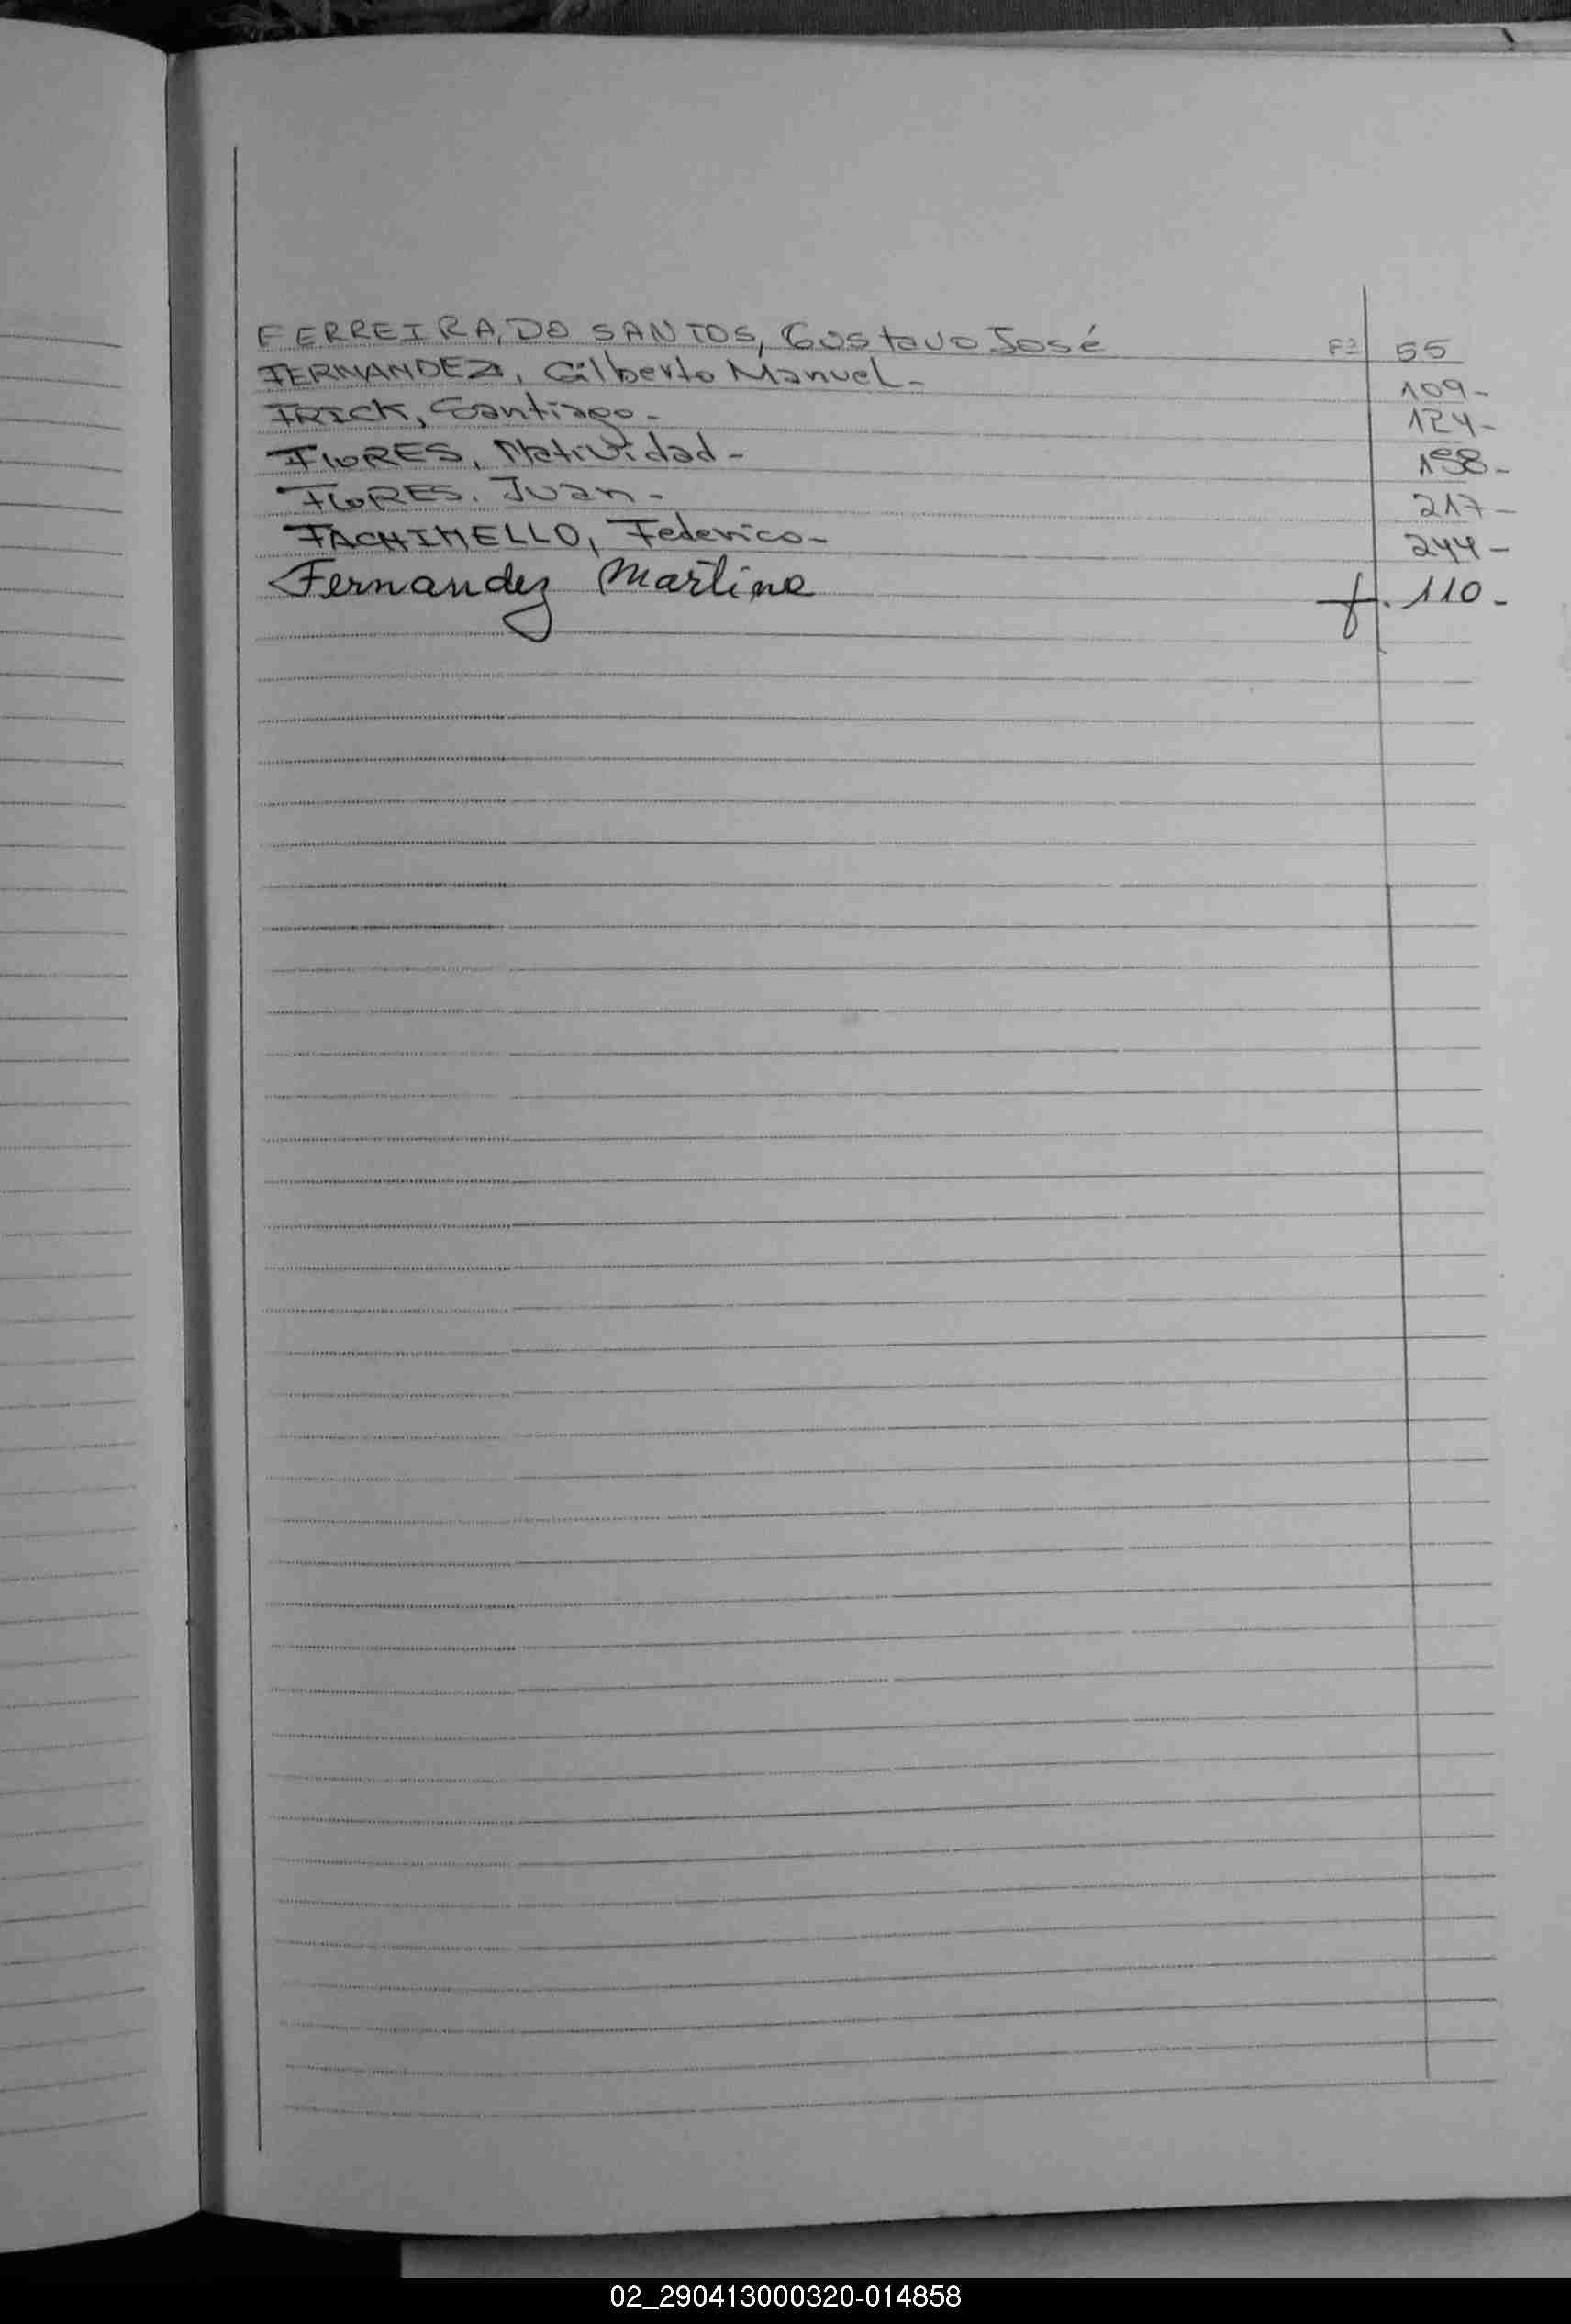 FERREIRA, DO SANTOS, Gustavo José Fº 55
FERNANDEZ, Gilberto Manuel- 109-
FRICK, Santiago- 124-
FloRES, Natividad- 198-
FloRES, Juan- 217-
FACHINELLO, Federico- 244-
Fernandez Martina f. 110-
02_290413000320-014858